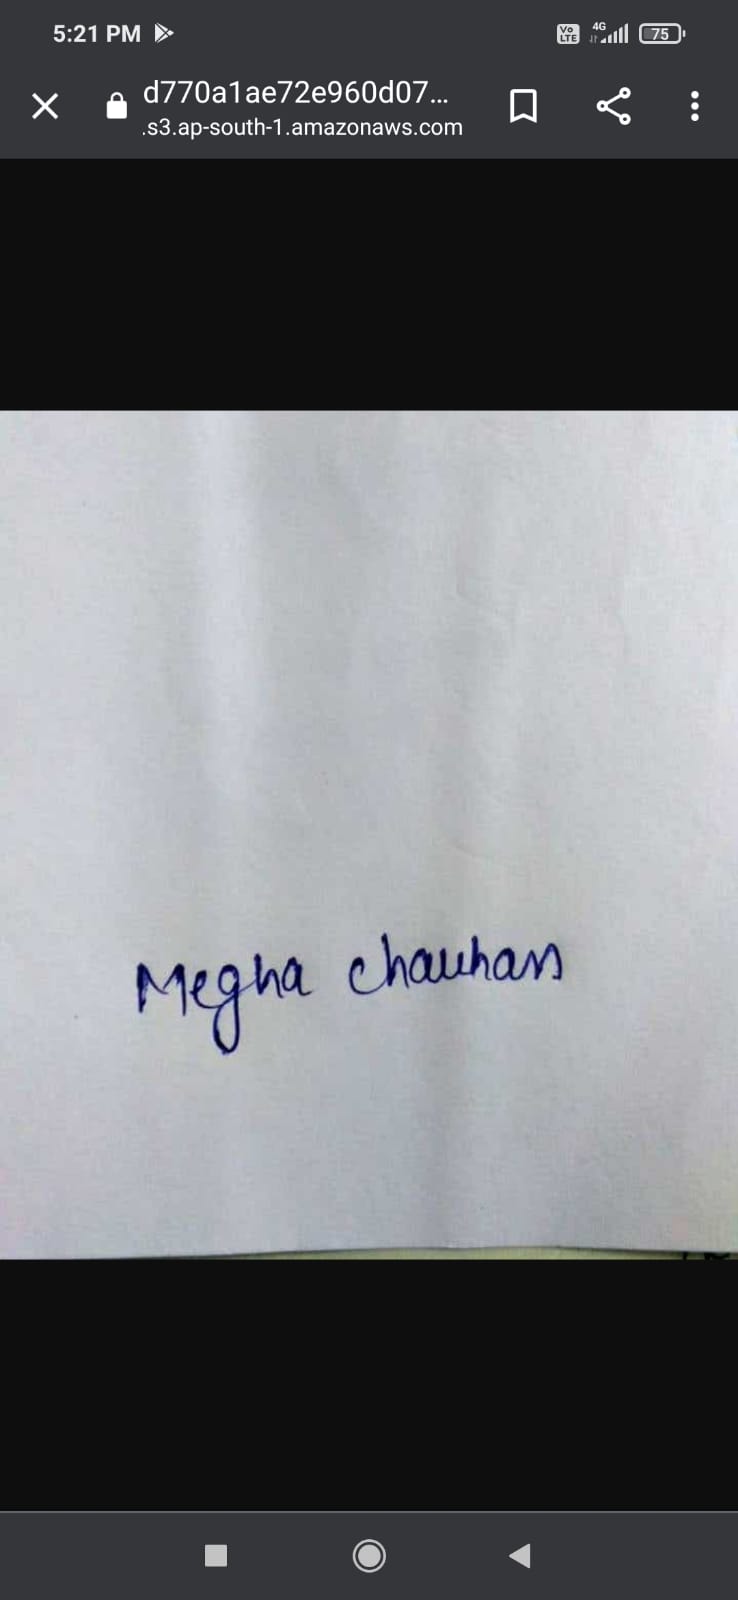 5:21 PM
Vo LTE 4G 75
d770a1ae72e960d07...
.s3.ap-south-1.amazonaws.com
Megha chauhan